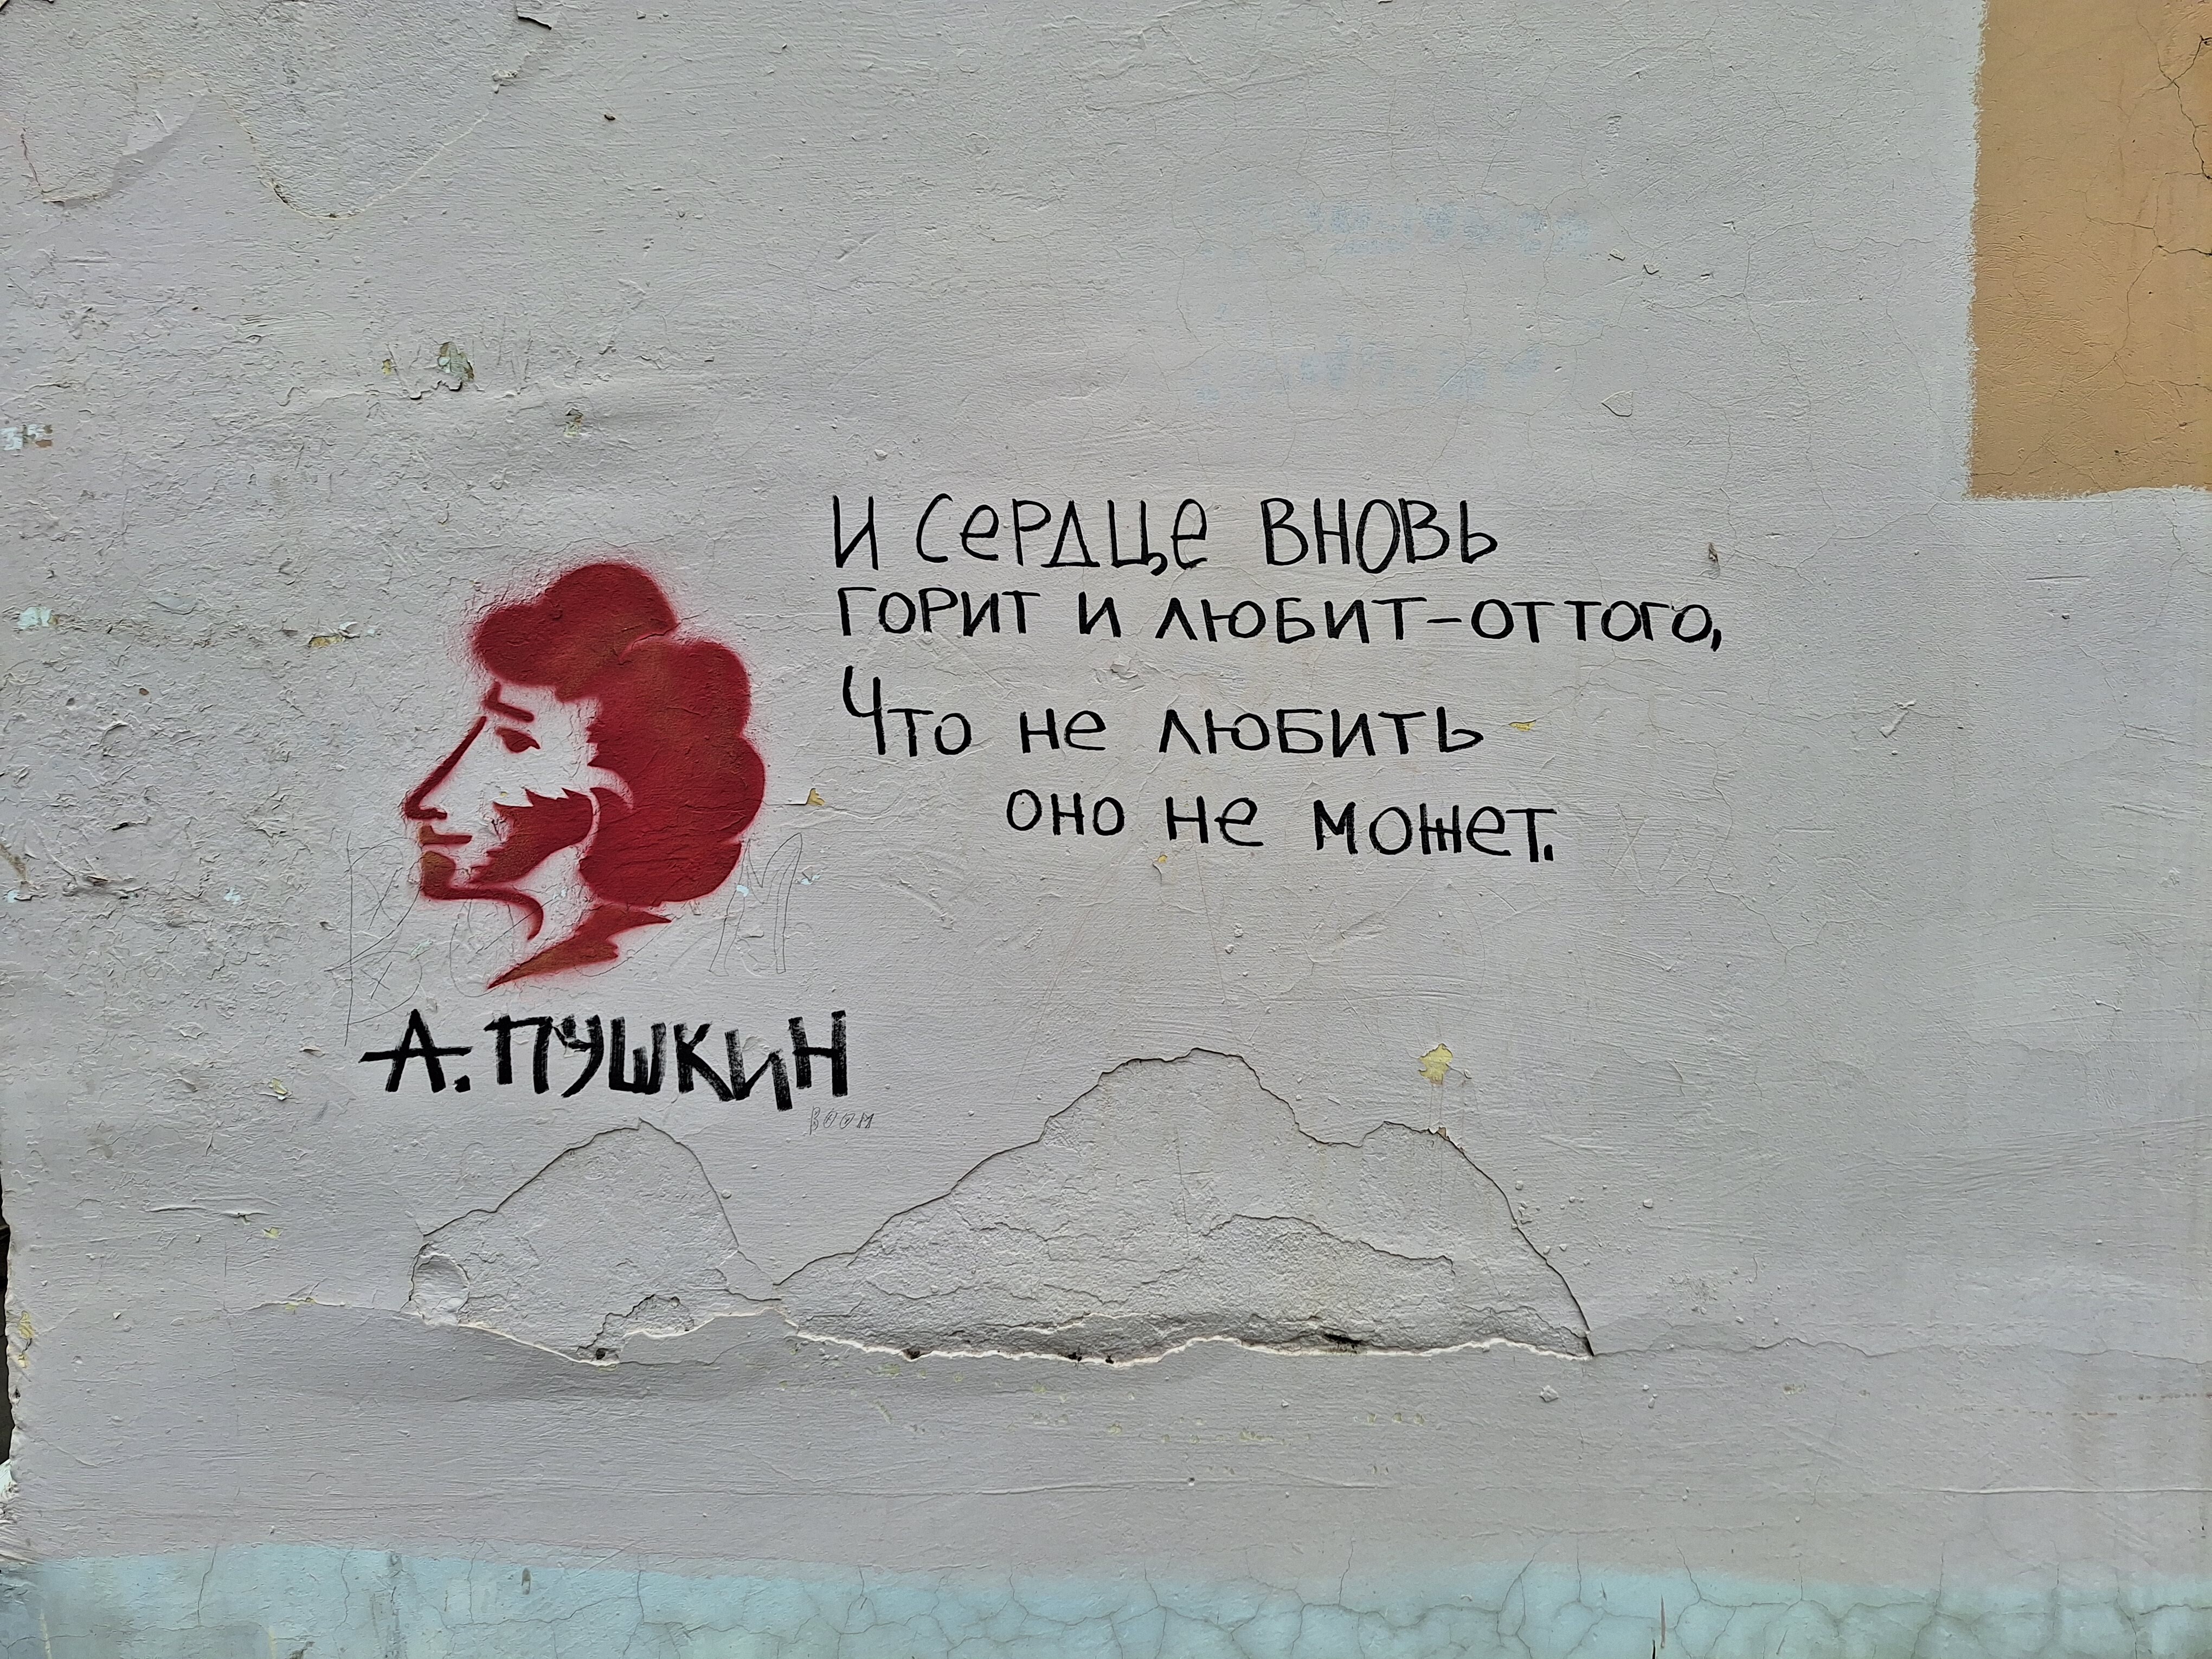 И сердце вновь
горит и любит-оттого,
Что не любить
оно не может.
А. ПУШКИН
BOOM